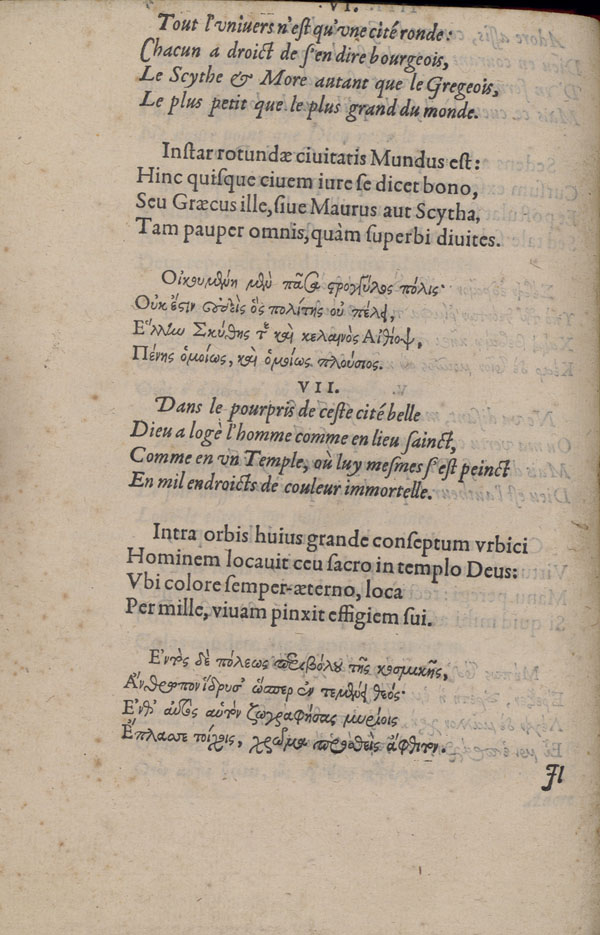 VI.
Tout l'vniuers n'est qu'vne cité ronde:
Chacun a droict de s'en dire bourgeois,
Le Scythe & More autant que le Gregeois,
Le plus petit que le plus grand du monde.
Instar rotundæ ciuitatis Mundus est:
Hinc quisque ciuem iure se dicet bono,
Seu Græcus ille, siue Maurus aut Scytha,
Tam pauper omnis, quàm superbi diuites.
Οἰκουμένη μὲν πᾶσα στρογγύλος πόλις·
Οὐκ ἔστιν οὐδεὶς ὃς πολίτης οὐ πέλει,
Ἕλλην Σκύθης τε καὶ κελαινὸς Αἰθίοψ,
Πένης ὁμοίως, καὶ ὁμοίως πλούσιος.
VII.
Dans le pourpris de ceste cité belle
Dieu a logè l'homme comme en lieu sainct,
Comme en vn Temple, où luy mesmes s'est peinct
En mil endroicts de couleur immortelle.
Intra orbis huius grande conseptum vrbici
Hominem locauit ceu sacro in templo Deus:
Vbi colore semper-æterno, loca
Per mille, viuam pinxit effigiem sui.
Ἐντὸς δὲ πόλεως περιβόλου τῆς κοσμικῆς,
Ἄνθρωπον ἵδρυσ' ὥσπερ ἐν τεμένει θεός·
Ἔνθ' αὐτὸς αὑτὸν ζωγραφήσας μυρίοις
Ἔπλασσε τοίχοις, χρῶμα προσθεὶς ἄφθιτον.
Il